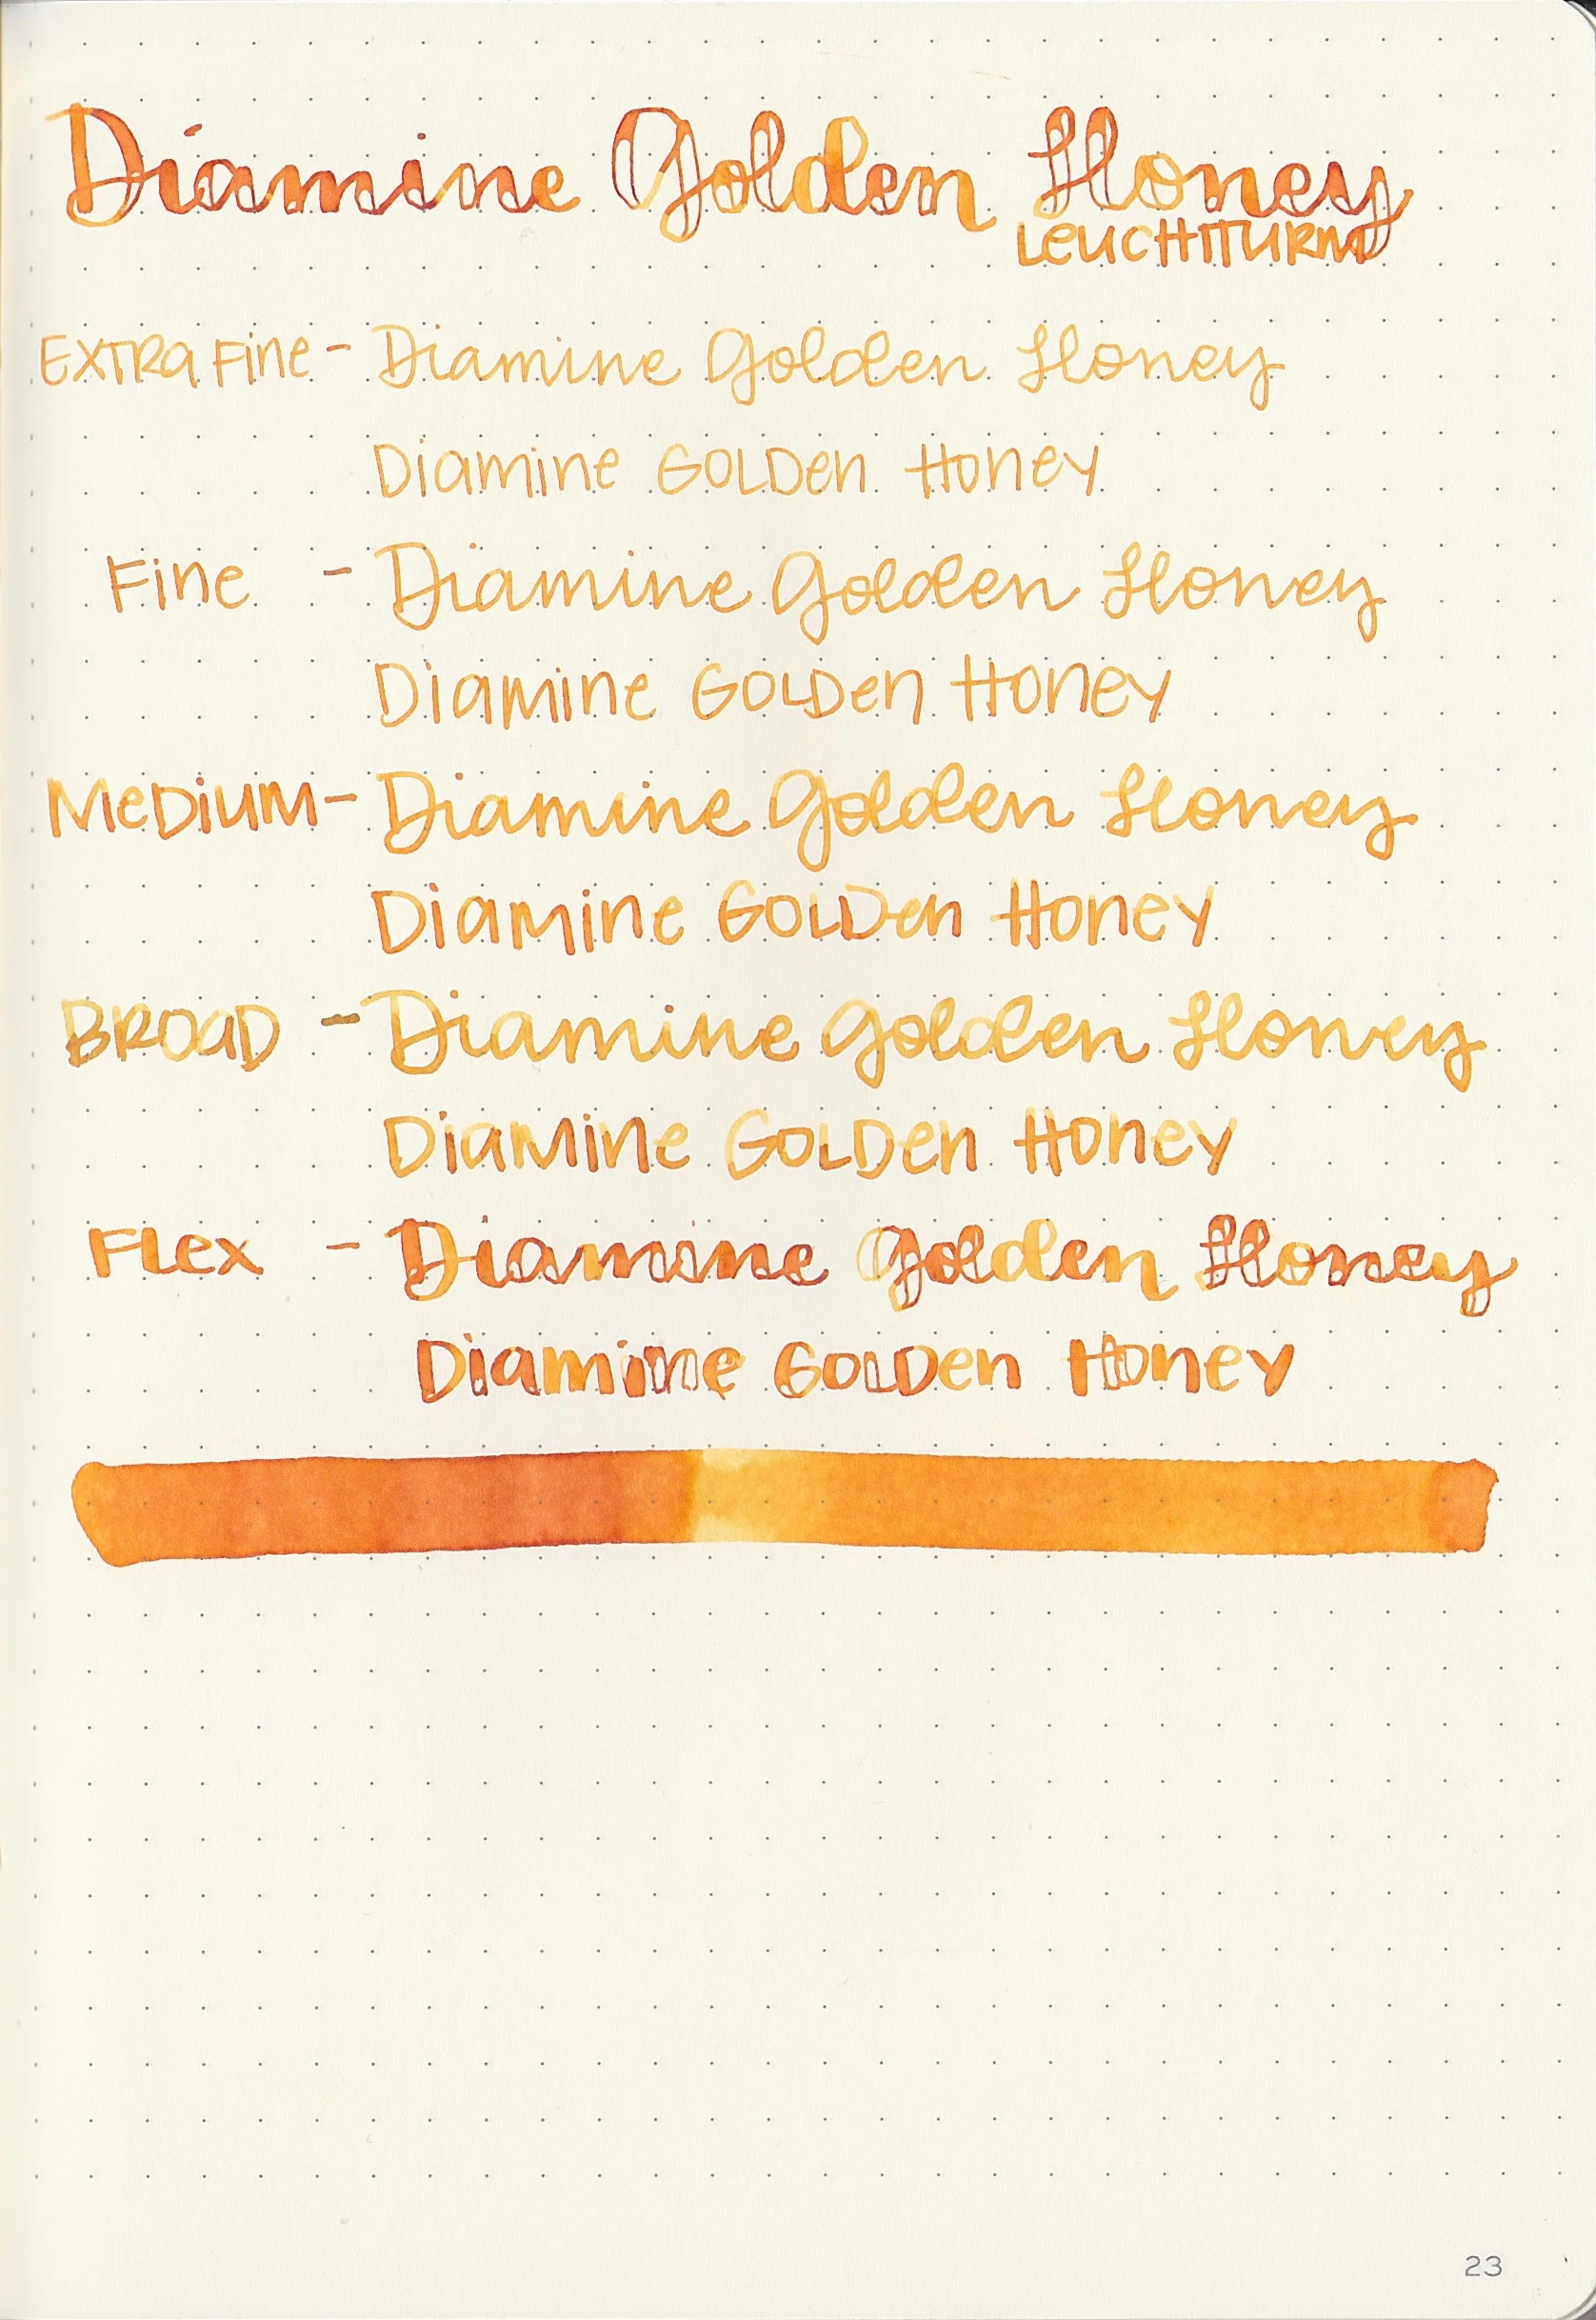 Diamine Golden Honey
LEUCHTTURM
EXTRA FINE - Diamine Golden Honey
Diamine GOLDen Honey
Fine - Diamine Golden Honey
Diamine GOLDen Honey
MeDIUM - Diamine Golden Honey
Diamine GOLDen Honey
BROAD - Diamine Golden Honey
Diamine GOLDen Honey
FLex - Diamine Golden Honey
Diamine GOLDen Honey
23